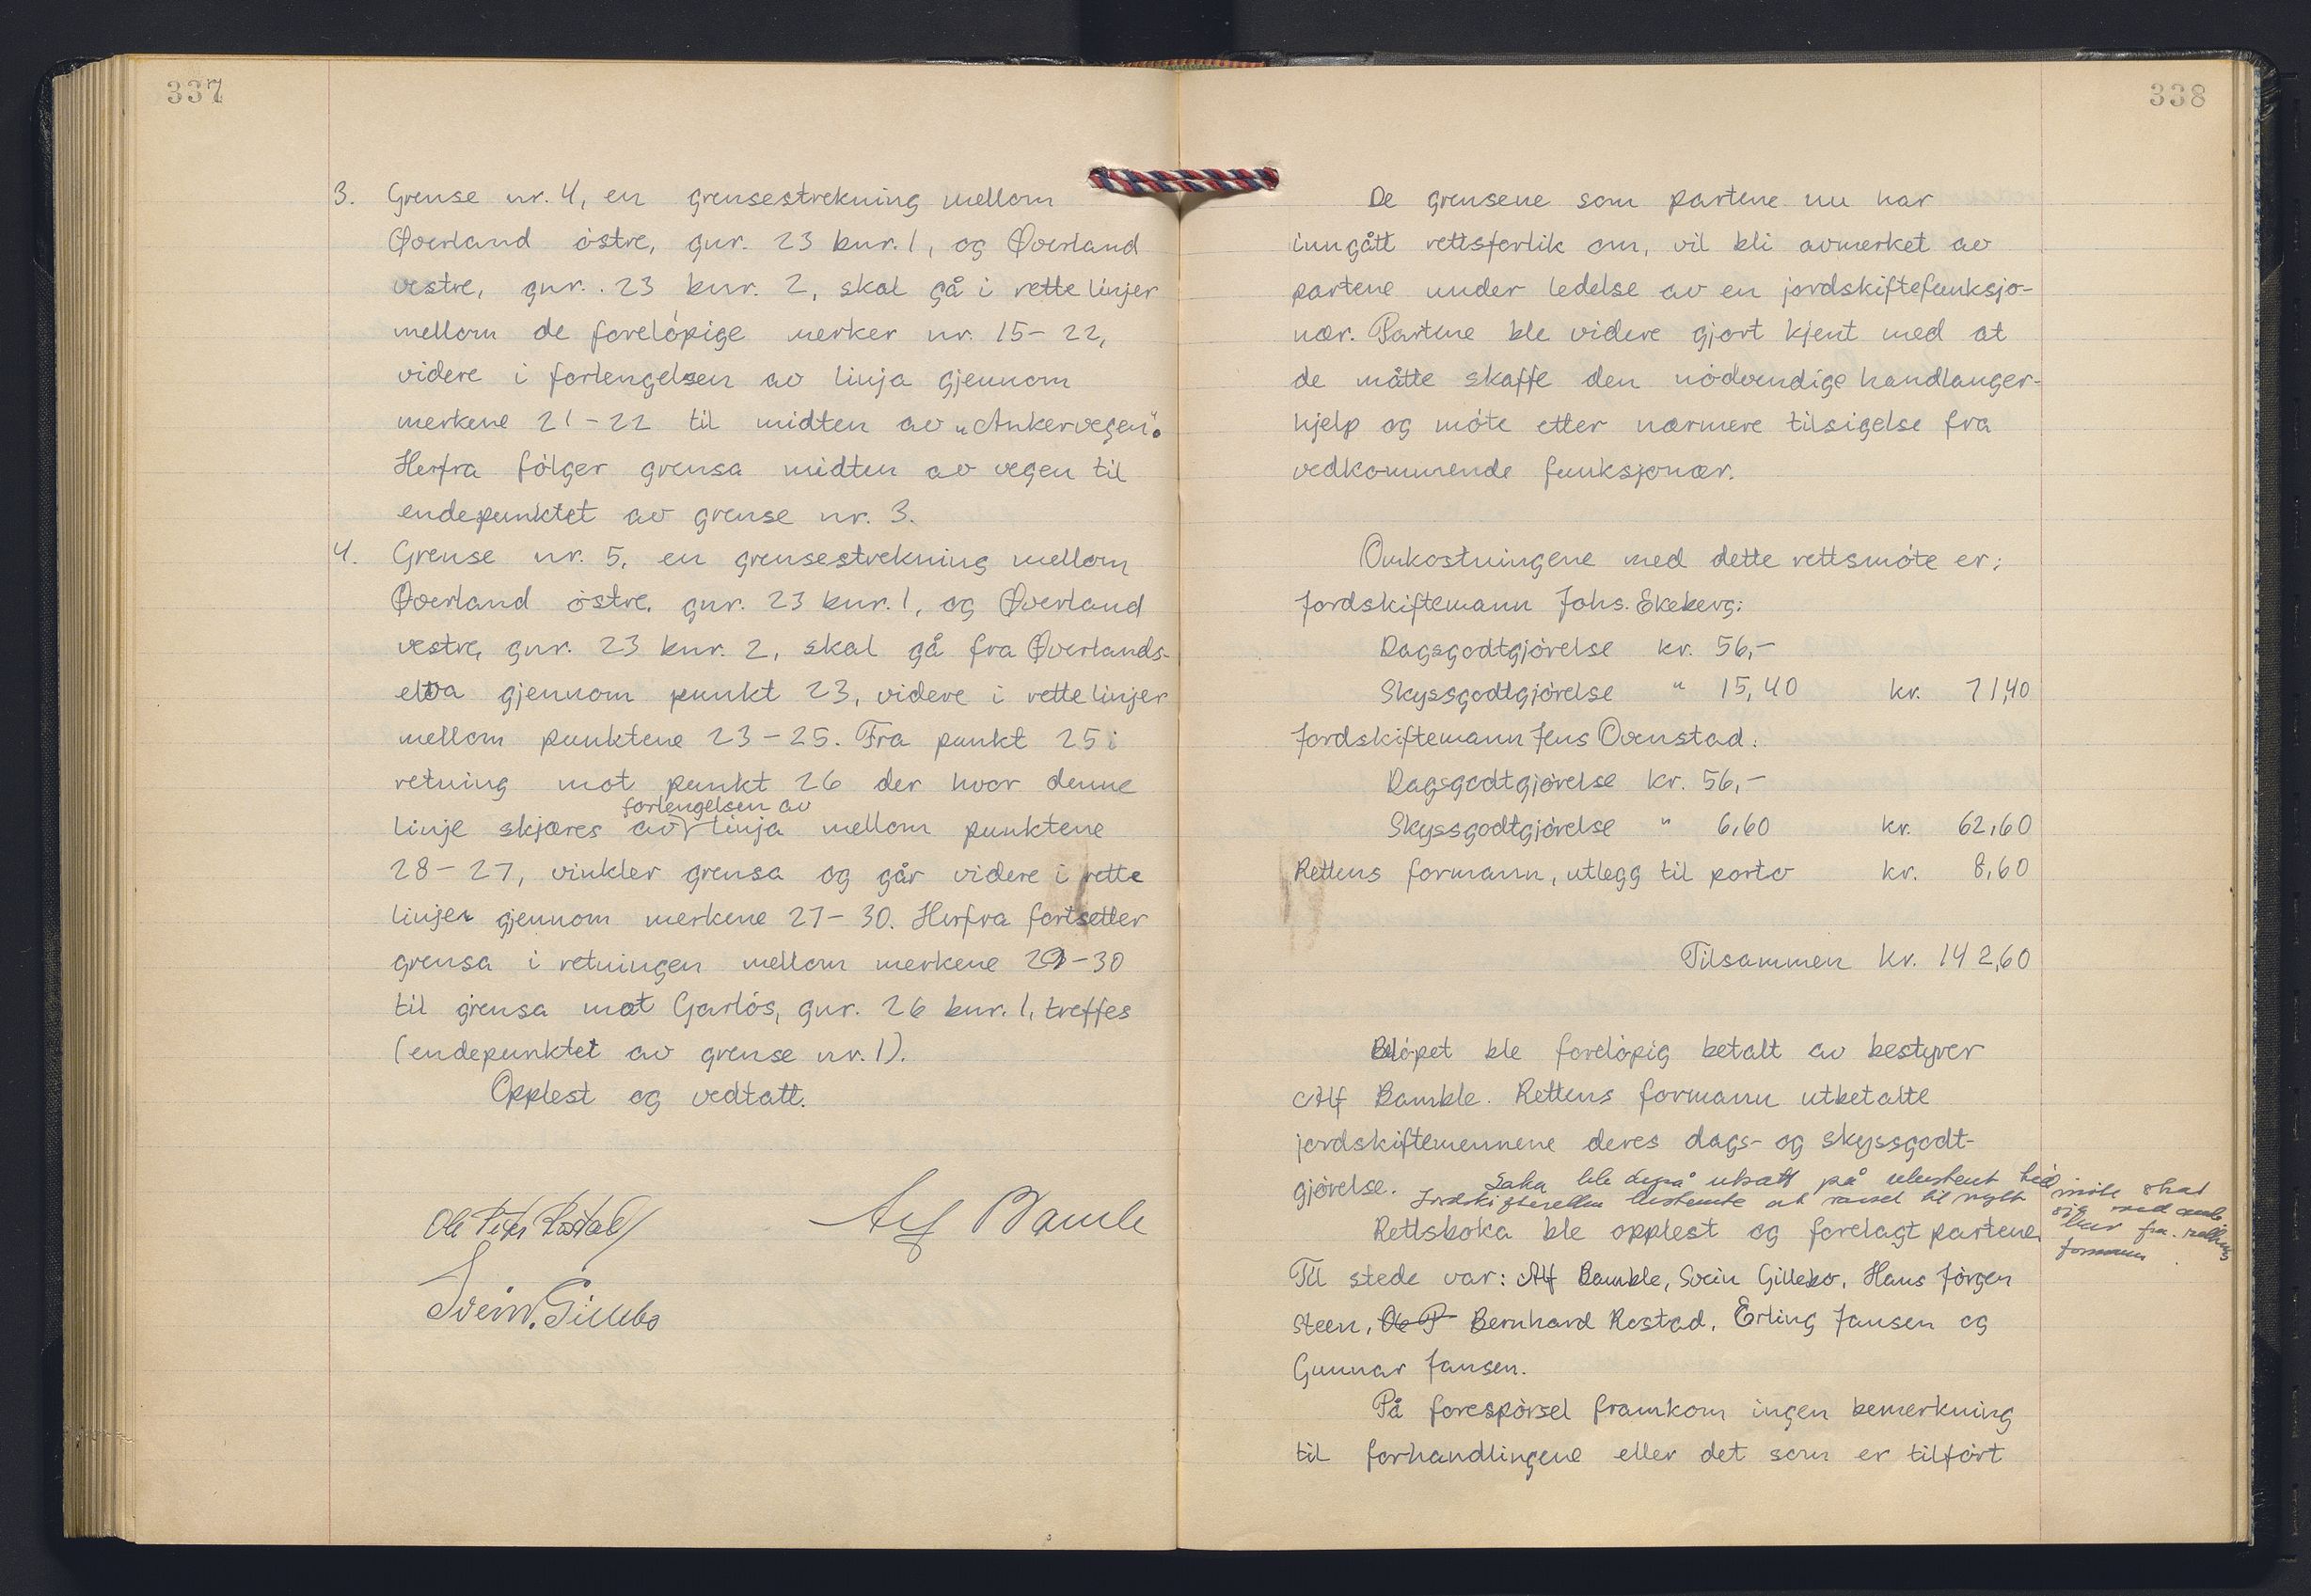 337
3. Grense nr. 4, en grensestrekning mellom
Øverland østre, gnr. 23 bnr. 1, og Øverland
vestre, gnr. 23 bnr. 2, skal gå i rette linjer
mellom de foreløpige merker nr. 15-22,
videre i forlengelsen av linja gjennom
merkene 21-22 til midten av „Ankervegen".
Herfra følger grensa midten av vegen til
endepunktet av grense nr. 3.
4. Grense nr. 5, en grensestrekning mellom
Øverland østre, gnr. 23 bnr. 1, og Øverland
vestre, gnr. 23 bnr. 2, skal gå fra Øverlands-
elva gjennom punkt 23, videre i rette linjer
mellom punktene 23-25. Fra punkt 25 i
retning mot punkt 26 der hvor denne
forlengelsen av
linje skjæres av linja mellom punktene
28-27, vinkler grensa og går videre i rette
linjer gjennom merkene 27-30. Herfra fortsetter
grensa i retningen mellom merkene 29-30
til grensa mot Garløs, gnr. 26 bnr. 1, treffes
(endepunktet av grense nr. 1).
Opplest og vedtatt.
Alf Bamble
Ole Peter Rostad
Svein Gillebo
338
De grensene som partene nu har
inngått rettsforlik om, vil bli avmerket av
partene under ledelse av en jordskiftefunksjo-
nær. Partene ble videre gjort kjent med at
de måtte skaffe den nødvendige handlanger-
hjelp og møte etter nærmere tilsigelse fra
vedkommende funksjonær.
Omkostningene med dette rettsmøte er:
Jordskiftemann Johs. Ekeberg:
Dagsgodtgjørelse kr. 56,-
Skyssgodtgjørelse " 15,40 kr. 71,40
Jordskiftemann Jens Ovenstad:
Dagsgodtgjørelse kr. 56,-
Skyssgodtgjørelse " 6,60 kr. 62,60
Rettens formann, utlegg til porto kr. 8,60
Tilsammen kr. 142,60
Beløpet ble foreløpig betalt av bestyrer
Alf Bamble. Rettens formann utbetalte
jordskiftemennene deres dags- og skyssgodt-
gjørelse. Saka ble derpå utsatt på ubestemt tid
Jordskifteretten bestemte at varsel til nytt møte skal
skje ved anb.
brev fra rettens
formann.
Rettsboka ble opplest og forelagt partene
Til stede var: Alf Bamble, Svein Gillebo, Hans Jørgen
Steen, Ole P Bernhard Rostad, Erling Jansen og
Gunnar Jansen.
På forespørsel framkom ingen bemerkning
til forhandlingene eller det som er tilført